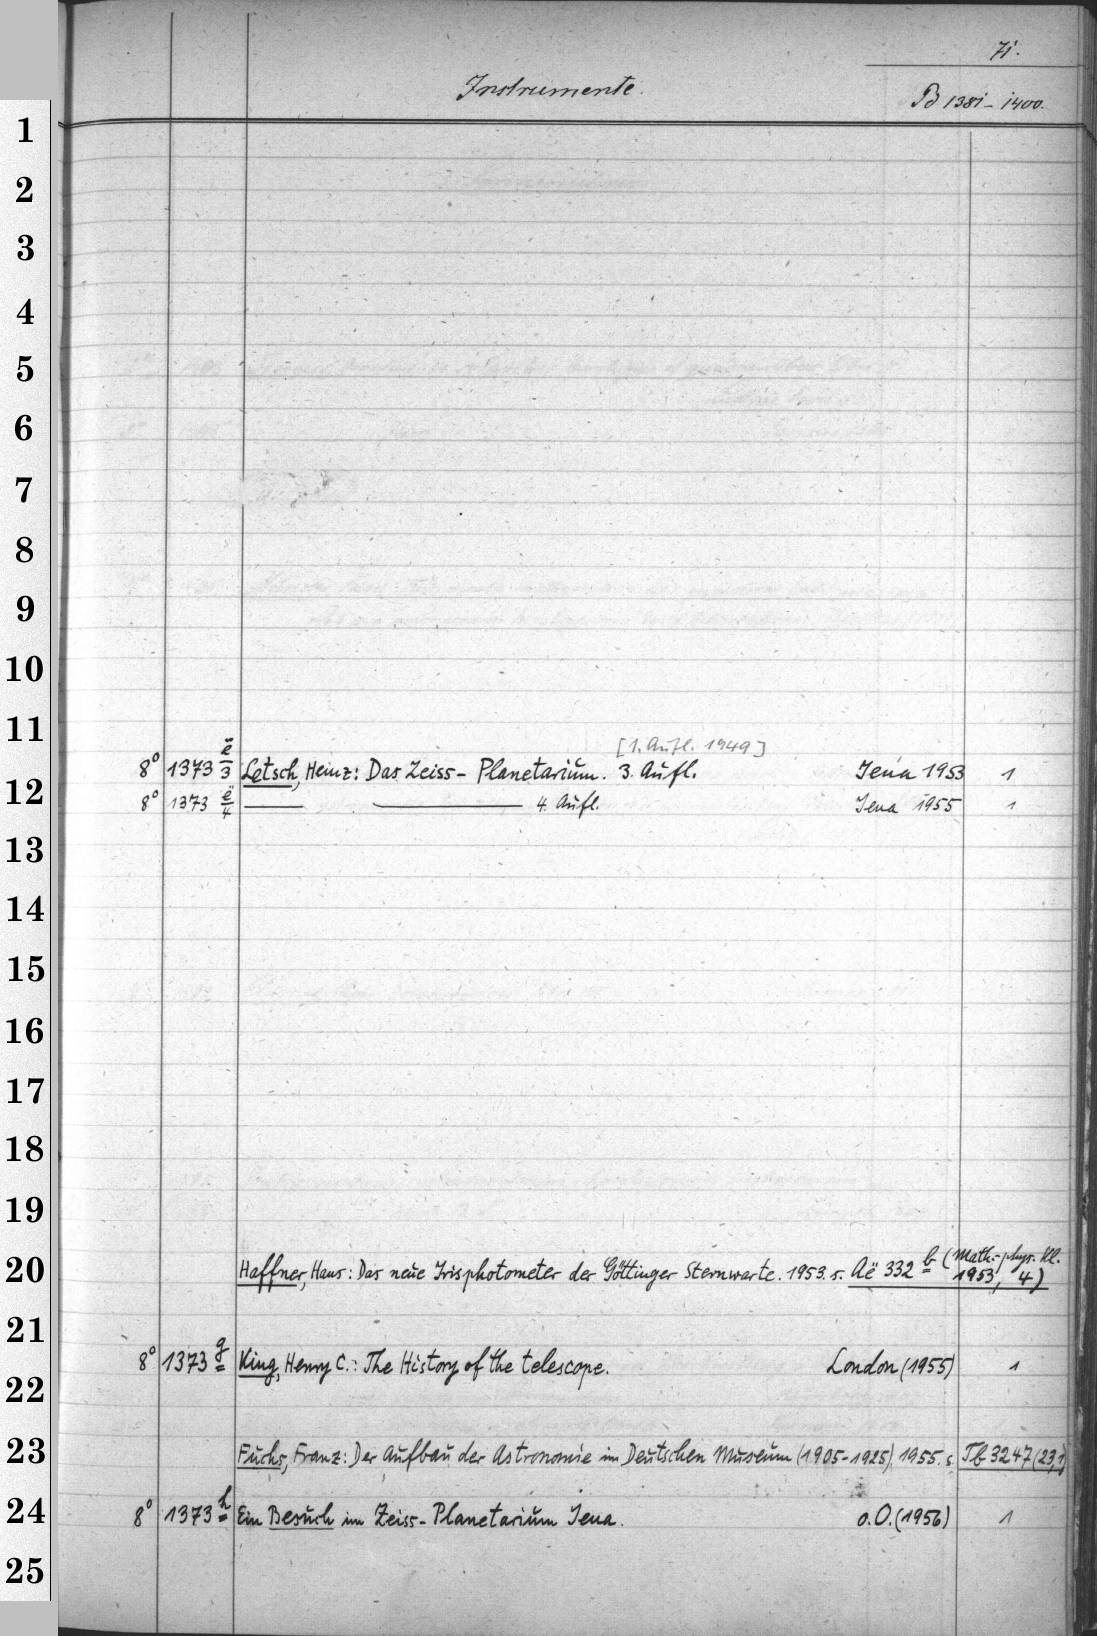 71.
Instrumente.
B 1381-1400.
1
2
3
4
5
6
7
8
9
10
11
[1. Aufl. 1949]
8° 1373 ë/3 Letsch, Heinz: Das Zeiss-Planetarium. 3. Aufl. Jena 1953 1
12
8° 1373 ë/4 —— —— 4. Aufl. Jena 1955 1
13
14
15
16
17
18
19
20 Haffner, Hans: Das neue Irisphotometer der Göttinger Sternwarte. 1953. s. Aë 332 b (Math.-phys. Kl. 1953, 4)
21
8° 1373 g King, Henry C.: The History of the telescope. London (1955) 1
22
23 Fuchs, Franz: Der Aufbau der Astronomie im Deutschen Museum (1905-1925), 1955. s. Tb 3247 (23,1)
24 8° 1373 h Ein Besuch im Zeiss-Planetarium Jena. o.O. (1956) 1
25